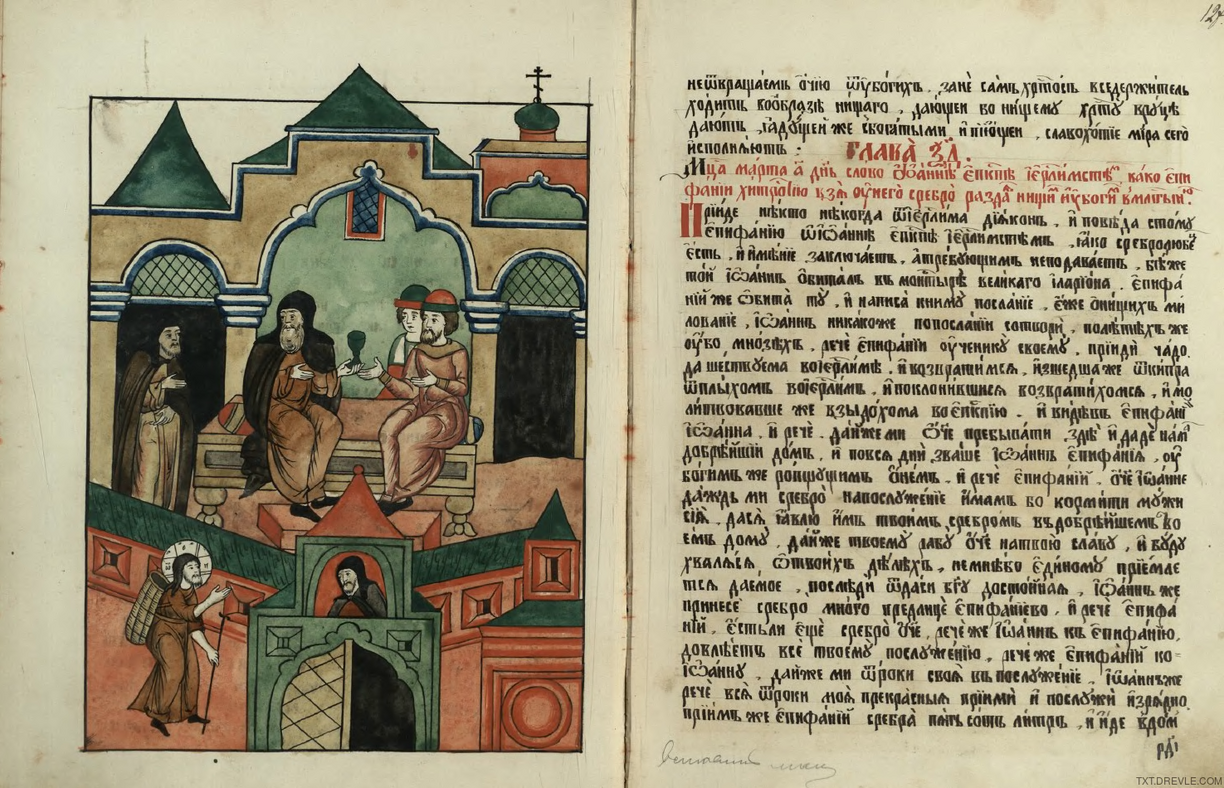 неѿвращаемъ ѻ҆чїю ѿᲂу҆богихъ . зане самъ хр҃тосъ вседержитель
ходитъ воѡ҆бразѣ нищаго . дающеи во нищему хр҃ту вруцѣ
даютъ . ꙗ҆дущеи же сбогатыми и҆ пїющеи . славохотїе мїра сего
и҆сполнѧютъ :
глава̀ ѯ҃д .
Мц҃а марта а҃ дн҃ь слово ѡ҆ і҆ѡ҆аннѣ є҆пⷭ҇кпѣ і҆ер҃лимстѣⷨ . како є҆пи
фанїи хитростїю взѧ̀ ᲂу҆него̀ сребро̀ раздаⷭ҇ нищиⷨ и҆ᲂу҆богиⷨ вмл҃стыню :
Прїиде нѣкто нѣкогда ѿїер҃лима дїѧконъ . и҆ повѣда ст҃ому
є҆пифанїю ѡ҆і҆ѡ҆аннѣ є҆пⷭ҇кпѣ і҆ер҃лимстѣмъ . ꙗ҆ко сребролюбеⷰ҇
є҆сть . и҆ и҆мѣнїе заключаетъ . а҆требующимъ неподаваетъ . бѣ же
той і҆ѡ҆аннъ ѻ҆биталъ въ мон҃тырѣ великаго і҆ларїона . є҆пифа
нїй же ѡ҆бита тᲂу . и҆ написа книмᲂу посланїе . є҆же ѡ҆нищихъ ми
лованїе . і҆ѡ҆аннъ никакоже попосланїи сотвори . полѣтѣхъ же
ᲂу҆бо мнозѣхъ . рече є҆пифанїи ᲂу҆ченику своемᲂу . прїиди чадо
да шествуема воі҆ер҃лимъ . и҆ возвратимсѧ . и҆зшедша же ѿкипра
ѿплыхомъ воі҆ер҃лимъ . и҆ поклонившисѧ возвратихомсѧ . и҆ мо
литвовавше же взыдохома воє҆пⷭ҇кпїю . и҆ видѣвъ є҆пифанїй
і҆ѡ҆анна . и҆ рече . дай же ми ѻ҆ч҃е пребывати здѣ и҆ даде намⸯ
добрѣйшїй домъ . и҆ повсѧ дни зваше і҆ѡ҆аннъ є҆пифанїѧ . ᲂу҆
богимъ же ропщущимъ ѡ҆немъ . и҆ рече є҆пифанїй . ѻ҆ч҃е і҆ѡ҆анне
даждь ми сребро̀ напослуженїе и҆мамъ бо кормити мᲂужи
сїѧ̀ . да сѧ̀ ꙗ҆влю и҆мъ твоимъ сребромъ въдобрѣйшемъ во
емъ домᲂу . дай же твоемᲂу рабᲂу ѻ҆ч҃е натвою славᲂу . и҆ бᲂудᲂу
хвалѧсѧ ѡ҆твоихъ дѣлѣхъ . немнѣбо є҆диномᲂу прїемле
тсѧ даемое . послѣди ѿдаси бг҃ᲂу достойнаѧ . і҆ѡ҆аннъ же
принесе сребро̀ много предлице є҆пифанїево . и҆ рече є҆пифа
нїй . є҆стьли є҆ще сребро̀ ѻ҆ч҃е . рече же і҆ѡ҆аннъ къ є҆пифанїю .
довлѣетъ все твоемᲂу послуженїю . рече же є҆пифанїй ко-
і҆ѡ҆аннᲂу . дай же ми ѿроки своѧ̀ въ послуженїе . і҆ѡ҆аннъ же
рече всѧ ѿроки моѧ̀ прекрасныѧ прїими и҆ послужи и҆зрѧдно
прїимъ же є҆пифанїй сребра̀ пѧть сотъ литръ . и҆ и҆де вдомъ
TXT.DREVLE.COM